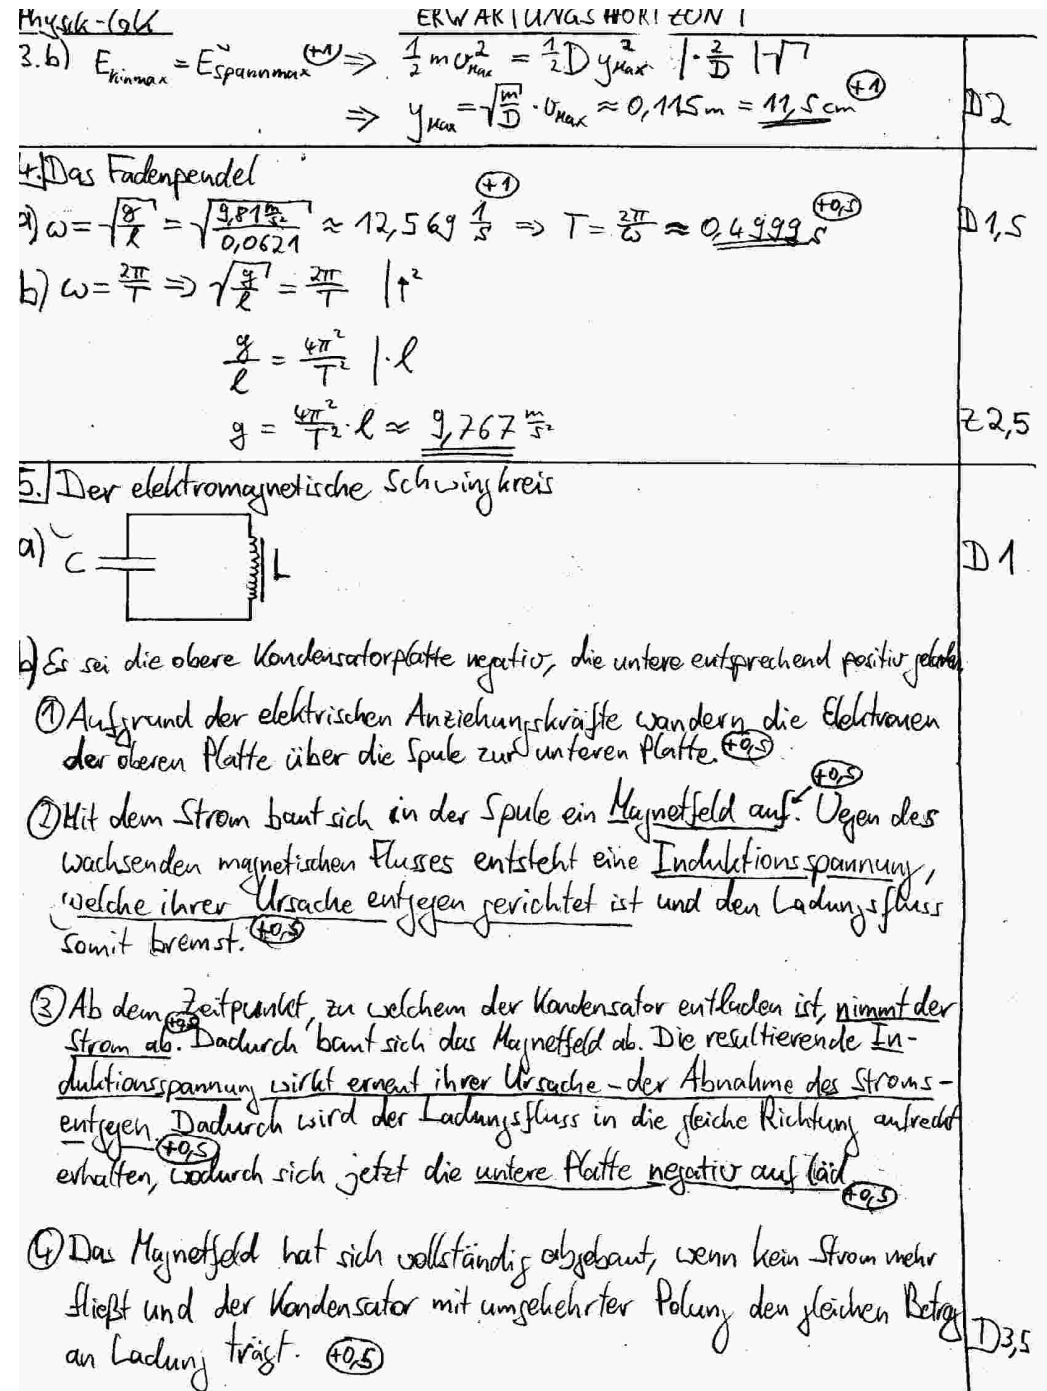 Physik-LgK ERWARTUNGSHORIZONT
3.b) E_kinmax = E_Spannmax (+1) ⇒ 1/2 m v²_Max = 1/2 D y²_Max | · 2/D | √
⇒ y_Max = √(m/D) · v_Max ≈ 0,115m = 11,5cm (+1) D2
4. Das Fadenpendel
a) ω = √(g/l) = √(9,81 m/s² / 0,0621) ≈ 12,569 1/s (+1) ⇒ T = 2π/ω ≈ 0,4999s (+0,5) D1,5
b) ω = 2π/T ⇒ √(g/l) = 2π/T | ↑²
g/l = 4π²/T² | · l
g = 4π²/T² · l ≈ 9,767 m/s² Z2,5
5. Der elektromagnetische Schwingkreis
a) C L D1
b) Es sei die obere Kondensatorplatte negativ, die untere entsprechend positiv geladen
① Aufgrund der elektrischen Anziehungskräfte wandern die Elektronen
der oberen Platte über die Spule zur unteren Platte. (+0,5)
② Mit dem Strom baut sich in der Spule ein Magnetfeld auf. (+0,5) Wegen des
wachsenden magnetischen Flusses entsteht eine Induktionsspannung,
welche ihrer Ursache entgegen gerichtet ist und den Ladungsfluss
somit bremst. (+0,5)
③ Ab dem Zeitpunkt, zu welchem der Kondensator entladen ist, nimmt der
Strom ab. (+0,5) Dadurch baut sich das Magnetfeld ab. Die resultierende In-
duktionsspannung wirkt erneut ihrer Ursache - der Abnahme des Stroms -
entgegen. (+0,5) Dadurch wird der Ladungsfluss in die gleiche Richtung aufrecht
erhalten, wodurch sich jetzt die untere Platte negativ auf läd. (+0,5)
④ Das Magnetfeld hat sich vollständig abgebaut, wenn kein Strom mehr
fließt und der Kondensator mit umgekehrter Polung den gleichen Betrag
an Ladung trägt. (+0,5) D3,5